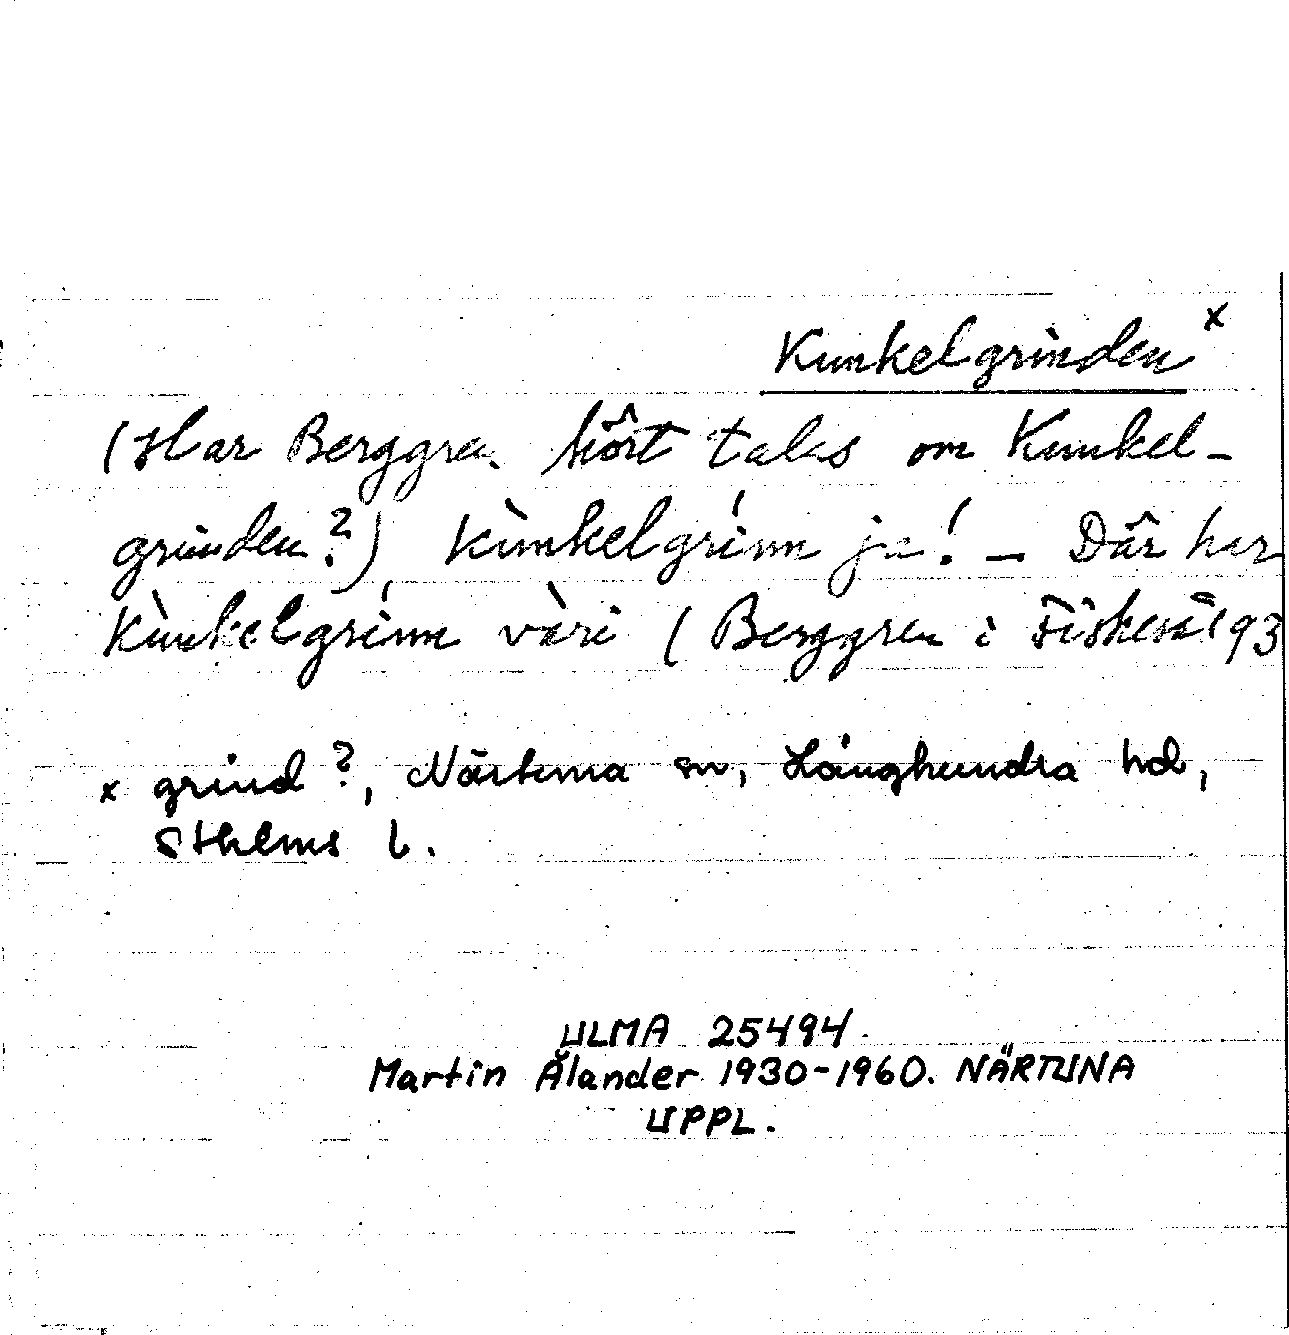 Kunkelgrinden x
(Har Berggren hört talas om Kunkel-
grinden?) Kùnkelgrínn ja! - Där har
Kùnkelgrínn vàri (Berggren i Fiskesä 193
x grind?, Närtuna sn, Långhundra hd,
Sthlms l.
ULMA 25494.
Martin Ålander 1930-1960. NÄRTUNA
UPPL.